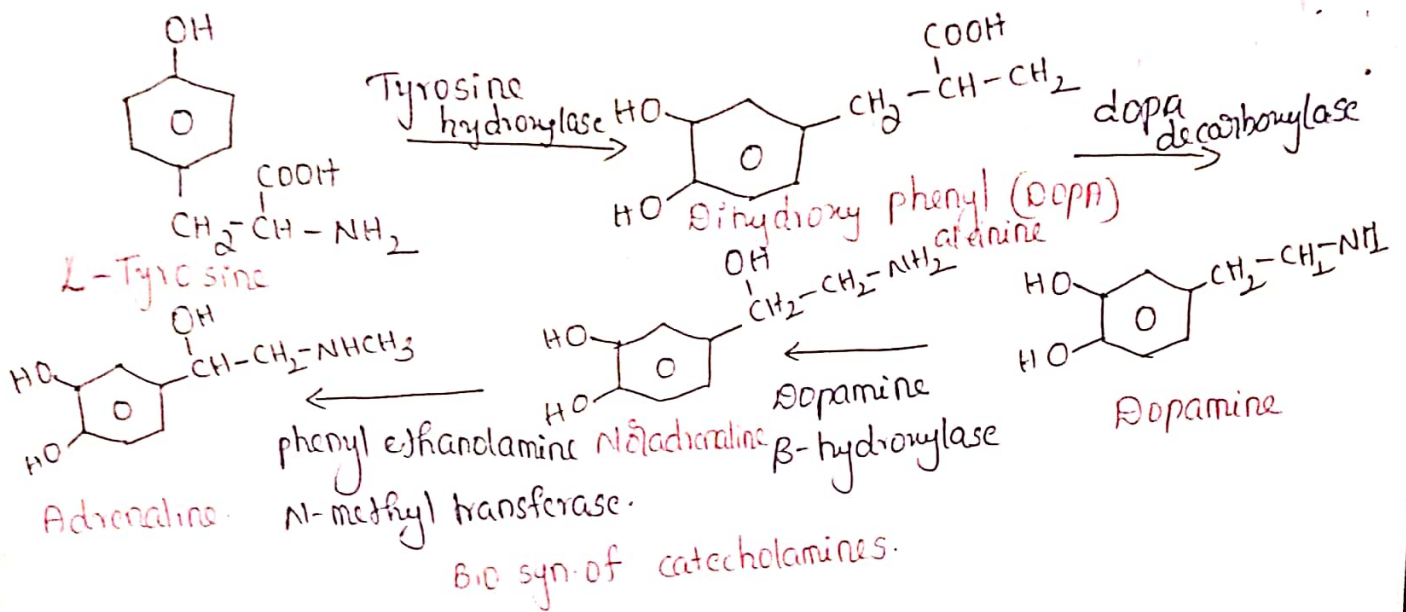 OH
COOH
CH2-CH-NH2
L-Tyrosine
Tyrosine
hydroxylase
COOH
HO
CH2-CH-CH2
HO
Dihydroxy phenyl (DOPA)
alanine
dopa
decarboxylase
HO
CH2-CH2-NH2
HO
Dopamine
Dopamine
β-hydroxylase
OH
CH2-CH2-NH2
HO
HO
Noradrenaline
phenyl ethanolamine
N-methyl transferase.
OH
CH-CH2-NHCH3
HO
HO
Adrenaline.
Bio syn. of catecholamines.